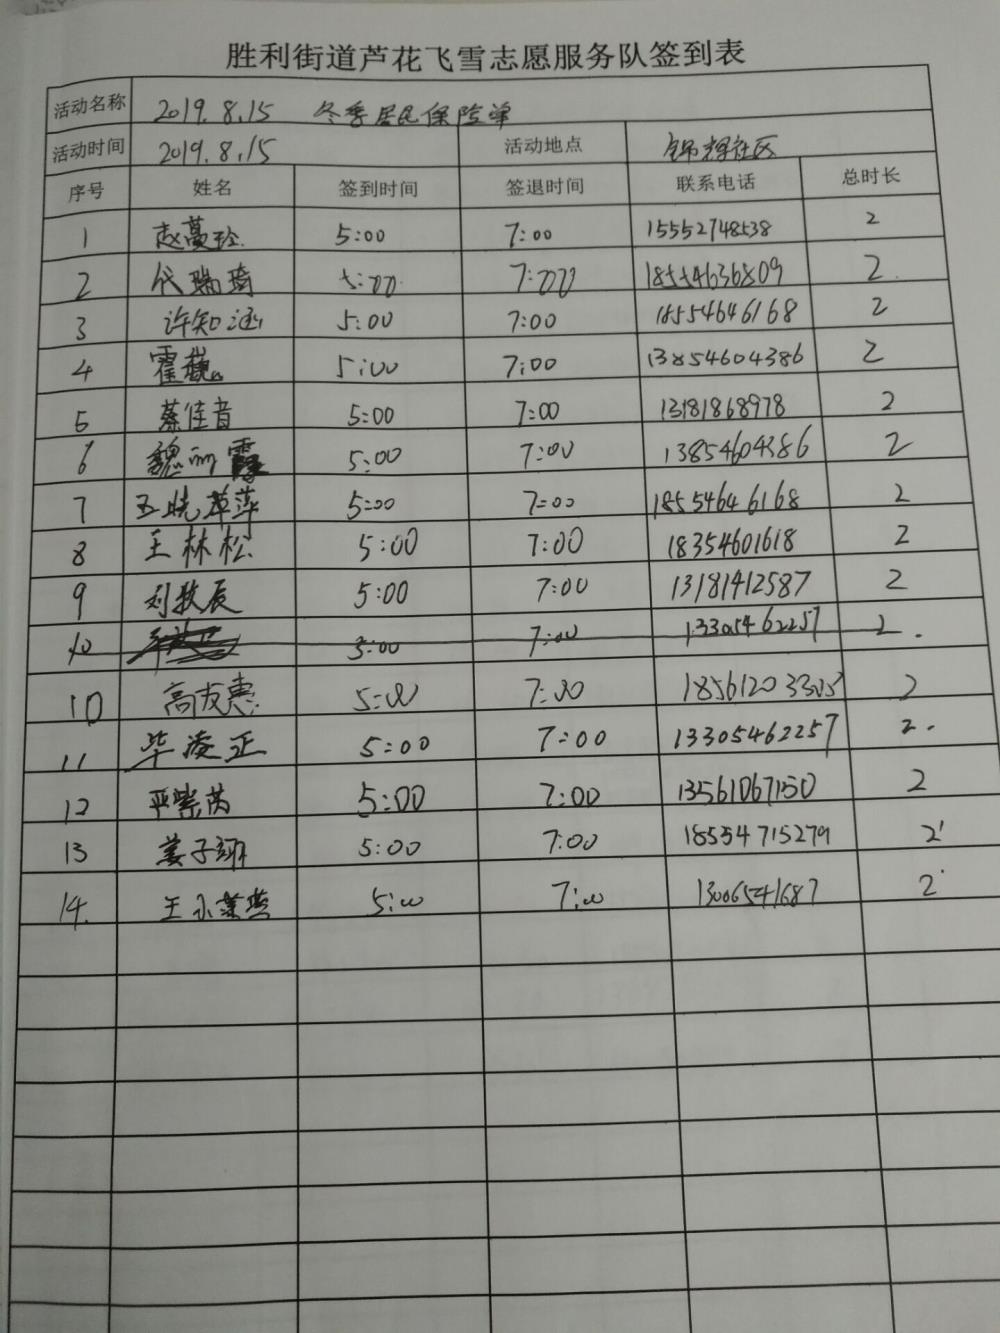 胜利街道芦花飞雪志愿服务队签到表
活动名称 2019.8.15 冬季居民保险单
活动时间 2019.8.15 活动地点 锦辉社区
序号 姓名 签到时间 签退时间 联系电话 总时长
1 赵蔓玲 5:00 7:00 15552748538 2
2 代瑞琦 5:00 7:00 18554636809 2
3 许知涵 5:00 7:00 18554646168 2
4 霍巍 5:00 7:00 13854604386 2
5 蔡佳音 5:00 7:00 13181868978 2
6 魏丽霞 5:00 7:00 13854604386 2
7 王晓萍 5:00 7:00 18554646168 2
8 王林松 5:00 7:00 18354601618 2
9 刘牧辰 5:00 7:00 13181412587 2
10 5:00 7:00 13305462257 2.
10 高友惠 5:00 7:00 18561203305 2
11 毕凌正 5:00 7:00 13305462257 2.
12 紫芮 5:00 7:00 13561067150 2
13 姜子翊 5:00 7:00 18554715279 2
14. 王 5:00 7:00 13006541687 2